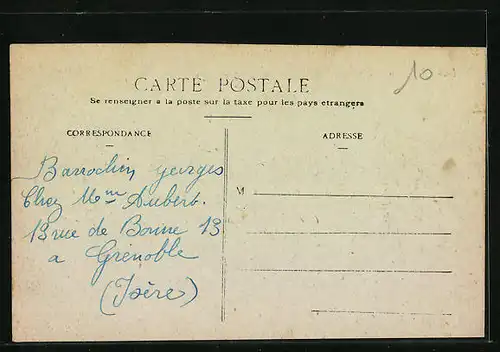 CARTE POSTALE
Se renseigner a la poste sur la taxe pour les pays etrangers
10
CORRESPONDANCE
ADRESSE
Georges
Chez Mme Aubert.
13 rue de Bonne 13
a Grenoble
(Isère)
M